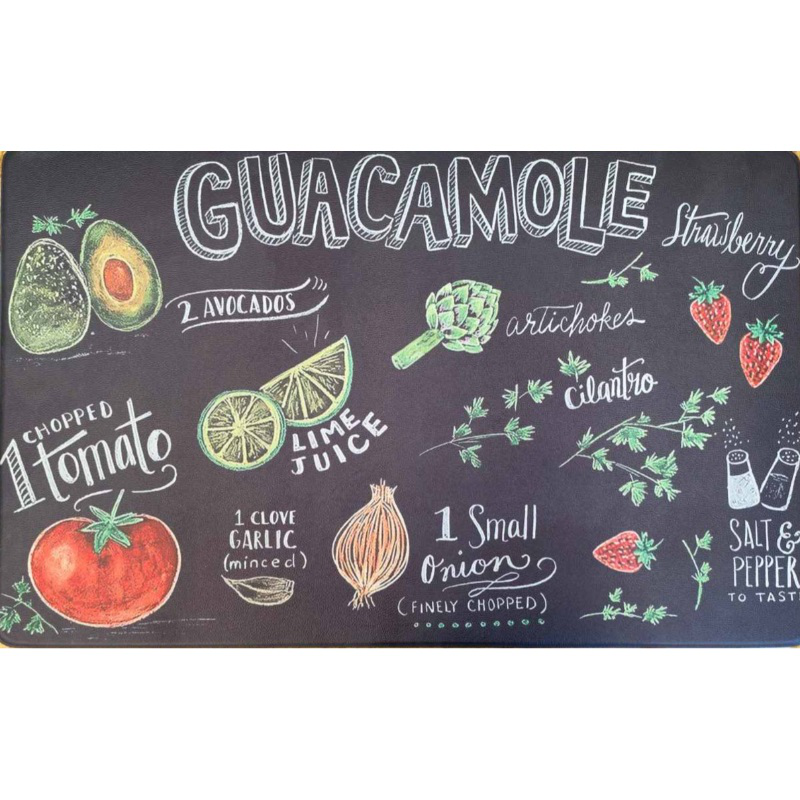 GUACAMOLE
Strawberry
2 AVOCADOS
artichokes
cilantro
LIME
JUICE
CHOPPED
1 tomato
1 CLOVE
GARLIC
(minced)
1 Small
Onion
(FINELY CHOPPED)
SALT &
PEPPER
TO TASTE